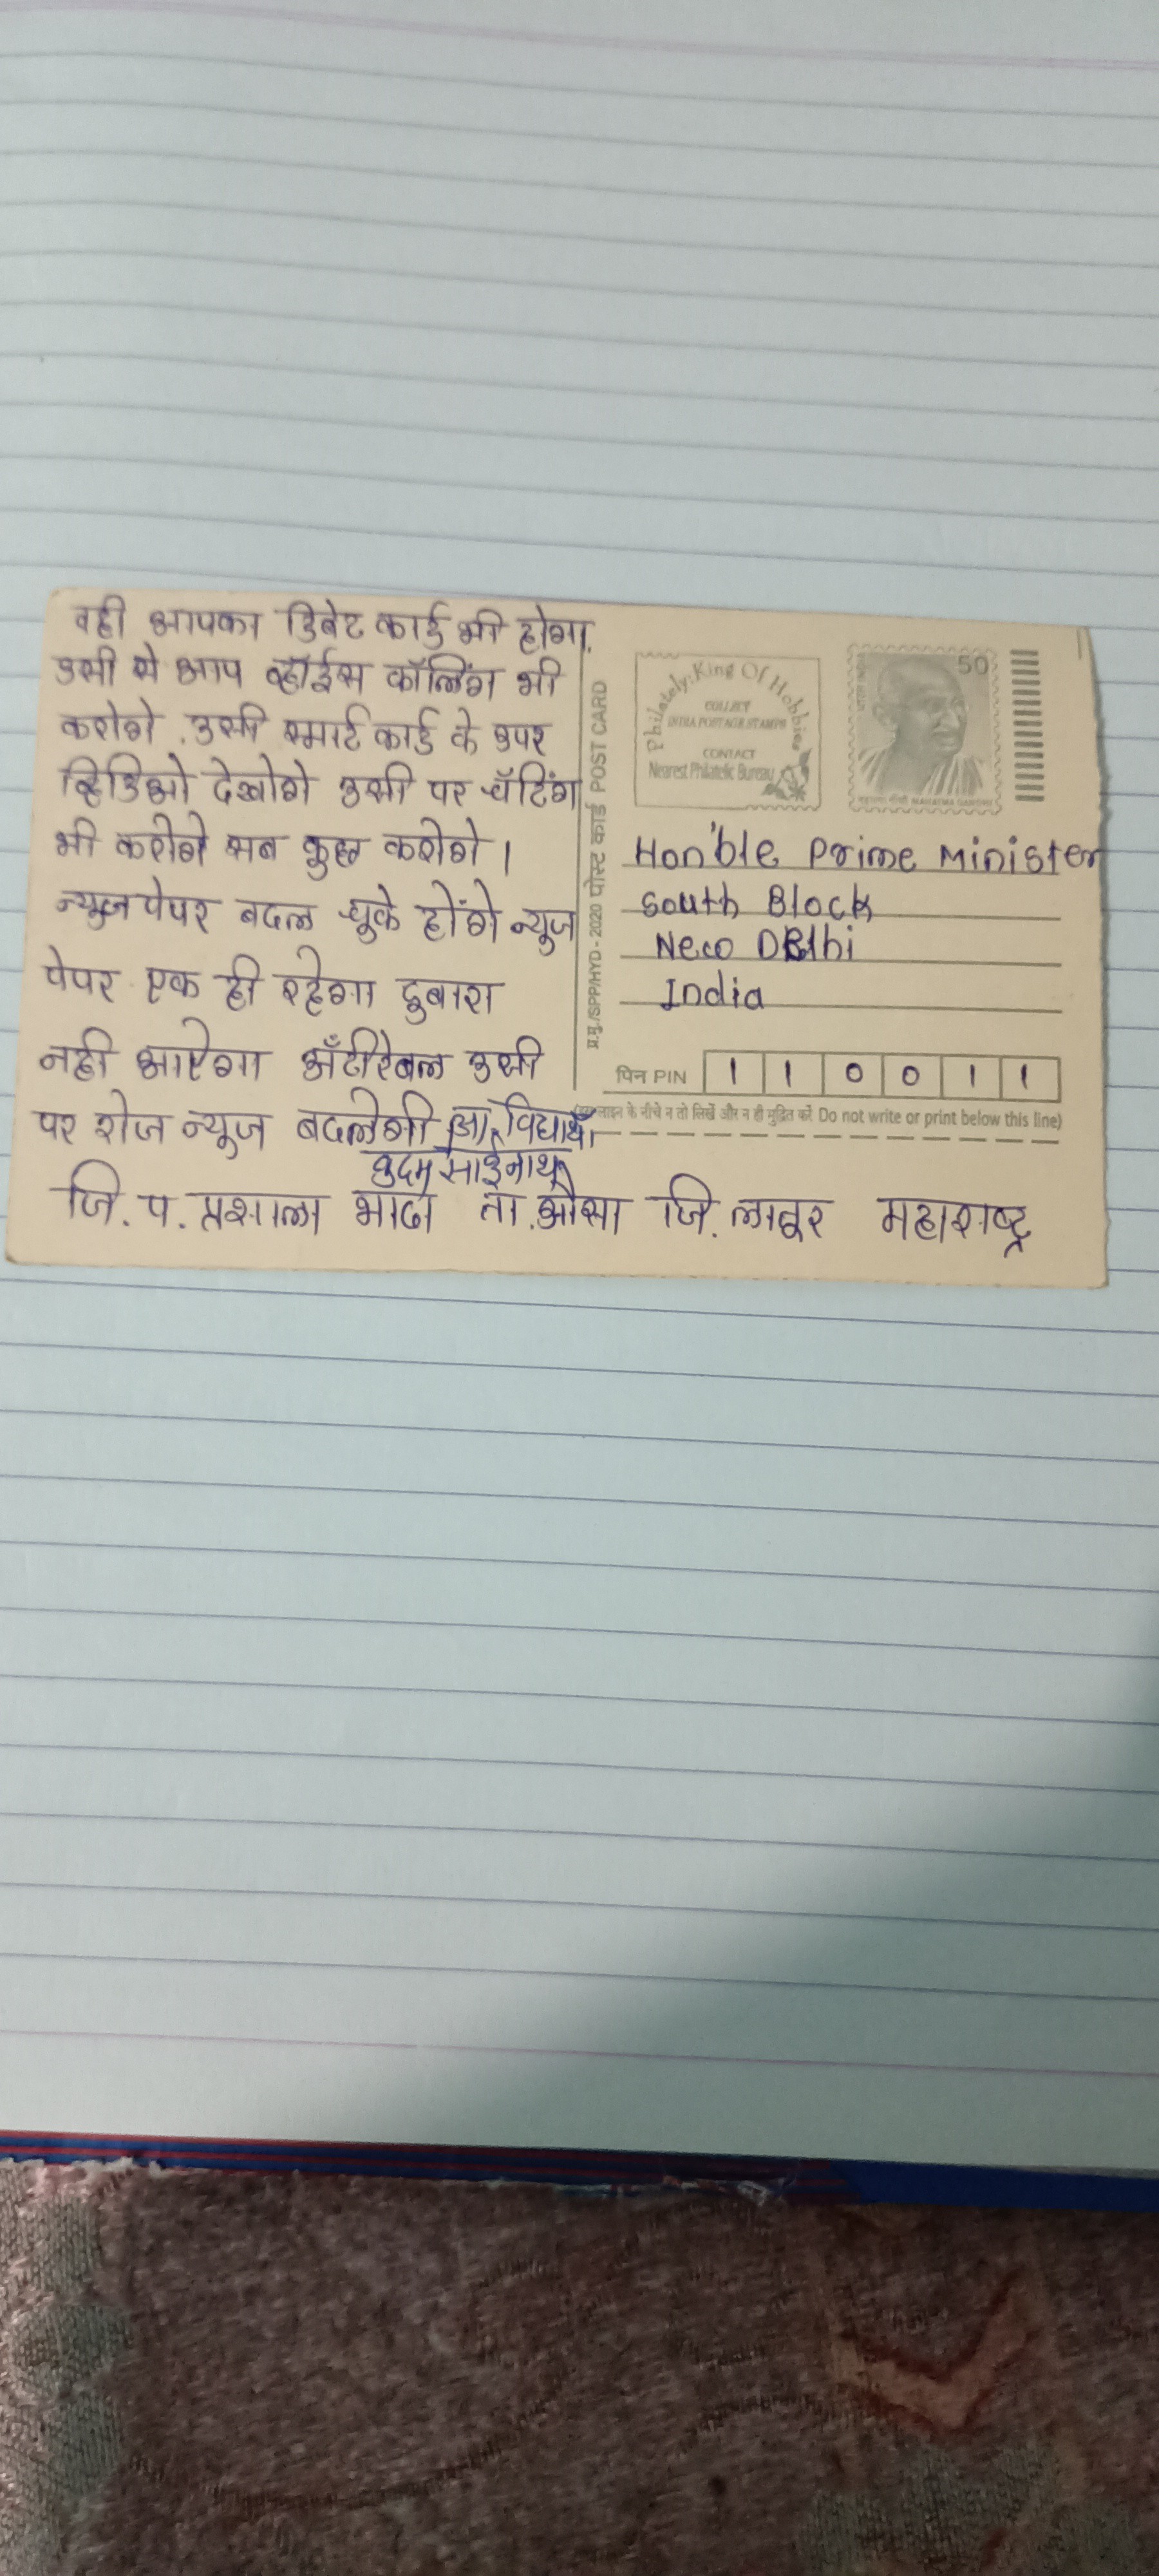 वही आपका डिबेट कार्ड भी होगा.
उसी से आप व्हॉईस कॉलिंग भी
करोगे .उसी स्मार्ट कार्ड के उपर
व्हिडिओ देखोगे उसी पर चॅटिंग
भी करोगे सब कुछ करोगे ।
न्यूज पेपर बदल चूके होंगे न्यूज
पेपर एक ही रहेगा दुबारा
नही आऐगा उसी
पर रोज न्यूज बदलेगी आ. विद्यार्थी
कुदम साईनाथ
जि. प. प्रशाला भादा ता. औसा जि. लातूर महाराष्ट्र
प्र.मु./SPP/HYD - 2020 पोस्ट कार्ड POST CARD
Philately: King Of Hobbies
COLLECT
INDIA POSTAGE STAMPS
CONTACT
Nearest Philatelic Bureau
50
भारत INDIA
महात्मा गाँधी MAHATMA GANDHI
Hon'ble Prime Minister
South Block
New Delhi
India
पिन PIN 1 1 0 0 1 1
लाइन के नीचे न तो लिखें और न ही मुद्रित करें Do not write or print below this line)